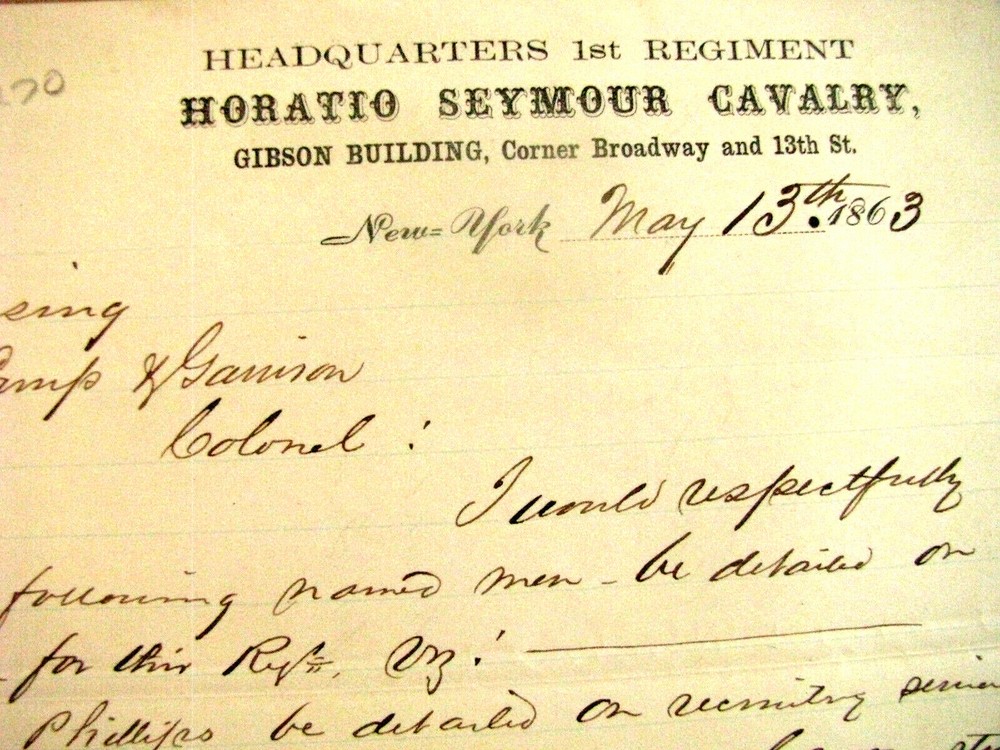 HEADQUARTERS 1st REGIMENT
HORATIO SEYMOUR CAVALRY,
GIBSON BUILDING, Corner Broadway and 13th St.
New-York May 13th. 1863
sing
Camp & Garrison
Colonel :
I would respectfully
following named men - be detailed on
for this Regt. Viz :
Phillips be detailed on recruiting